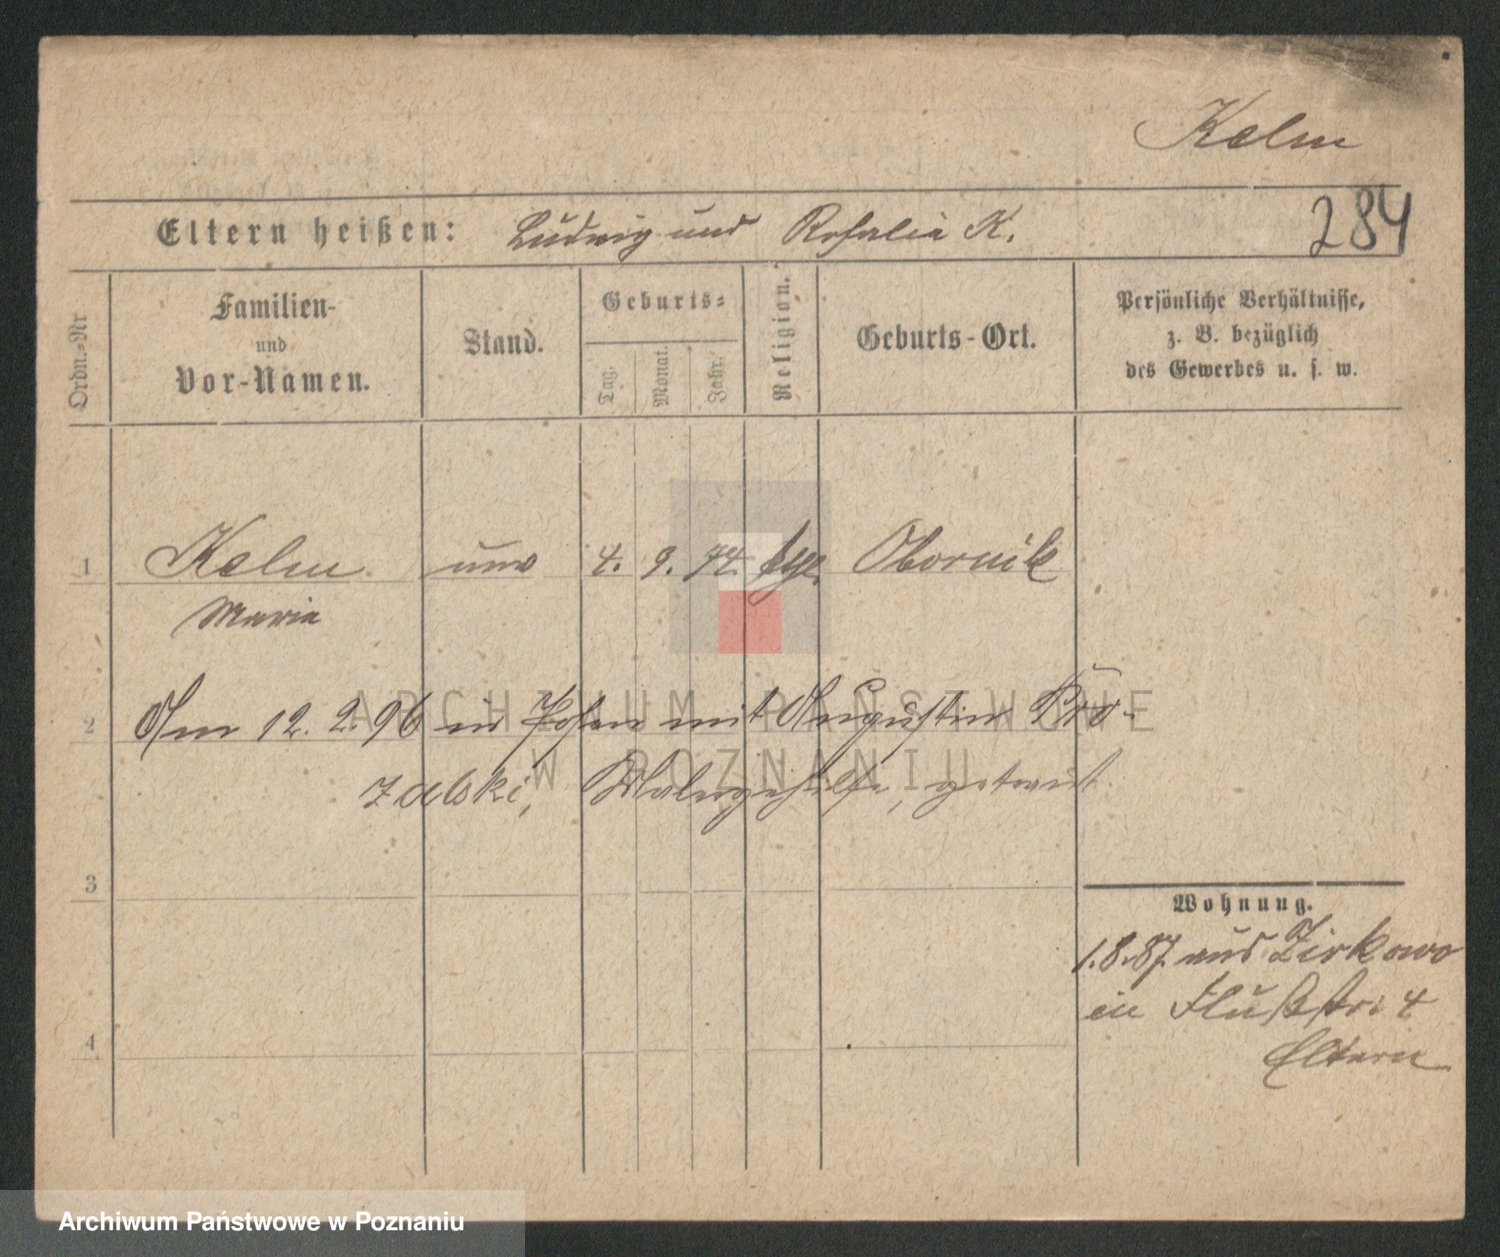 Kelm
284
Eltern heißen: Ludwig und Rosalie K.
Ordn.=Nr
Familien-
und
Vor-Namen.
Stand.
Geburts=
Tag.
Monat.
Jahr.
Religion.
Geburts-Ort.
Persönliche Verhältnisse,
z. B. bezüglich
des Gewerbes u. s. w.
1 Kelm unv 4. 9. 74. Obornik
Marie
2 Am 12. 2. 96 in Posen mit Augustin Bro-
zalski, Malergehilfe, getraut
3
Wohnung.
1.8.87. aus Zirkowo
in Flußstr. 4
Eltern
4
ARCHIWUM PAŃSTWOWE
W POZNANIU
Archiwum Państwowe w Poznaniu